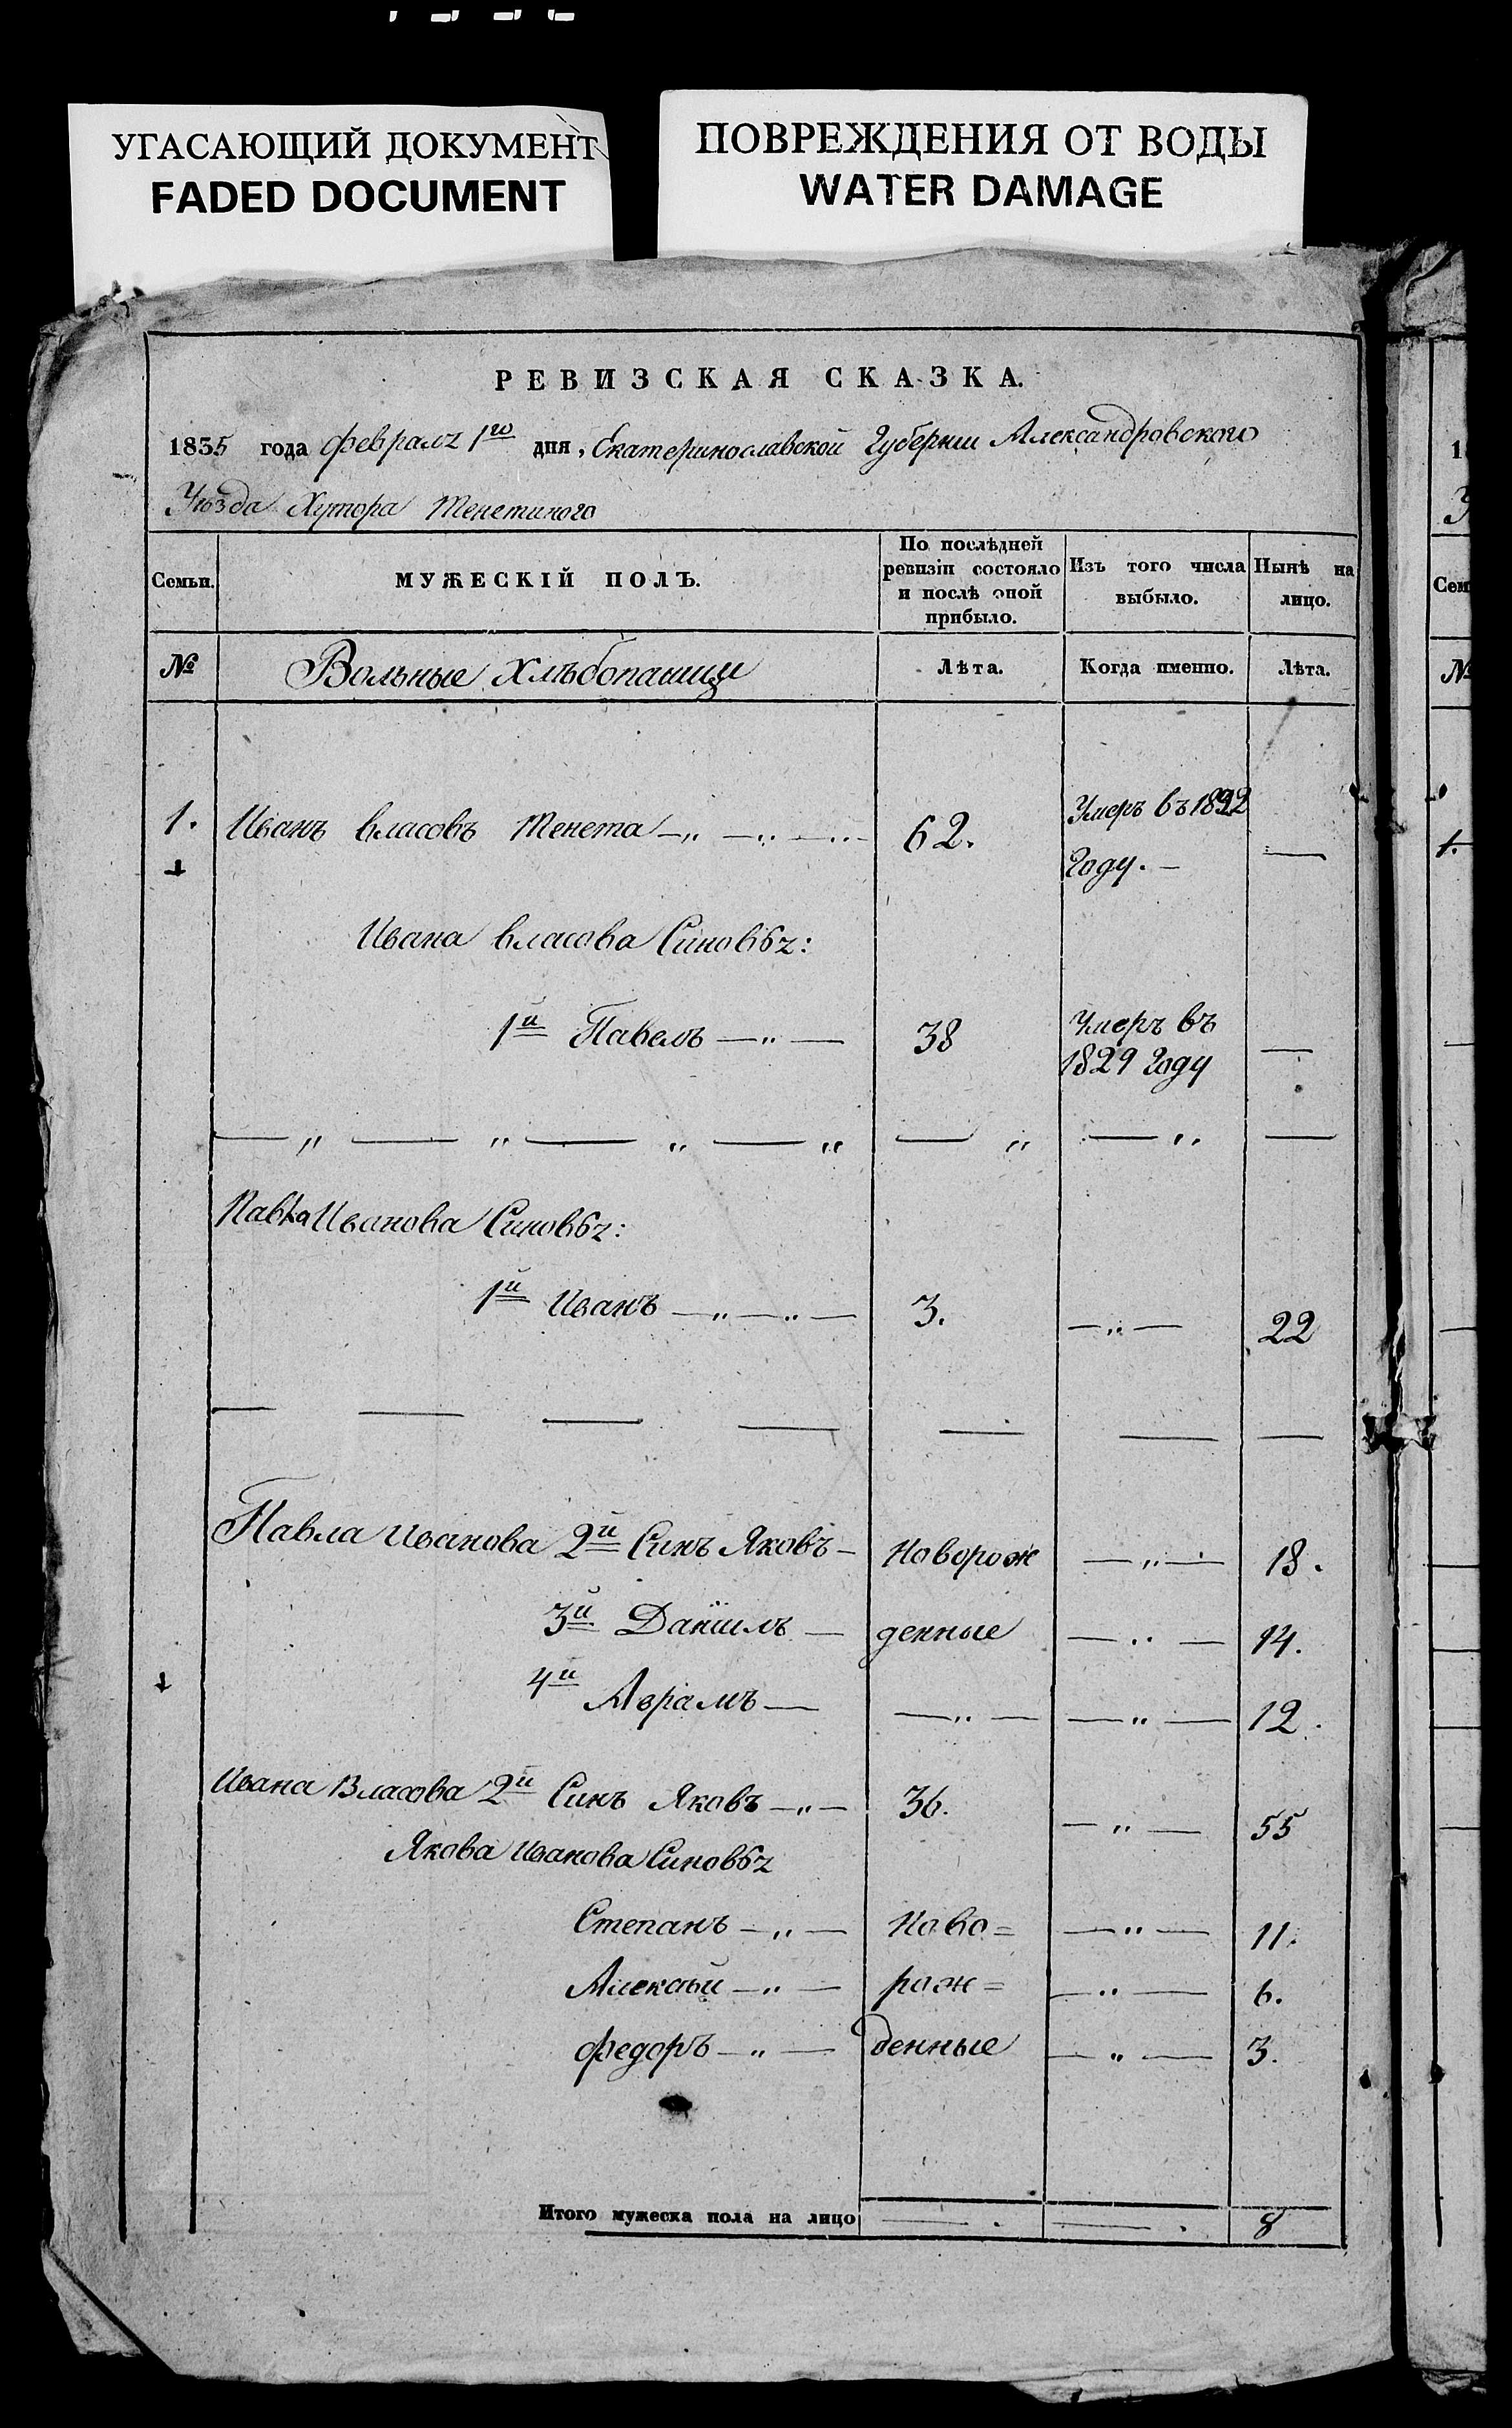 УГАСАЮЩИЙ ДОКУМЕНТ
FADED DOCUMENT
ПОВРЕЖДЕНИЯ ОТ ВОДЫ
WATER DAMAGE
РЕВИЗСКАЯ СКАЗКА.
1835 года февраля 1го дня, Екатеринославской Губернии Александровского
Уѣзда Хутора Тенетиного
Семьи. МУЖЕСКІЙ ПОЛЪ. По послѣдней ревизіи состояло и послѣ оной прибыло. Изъ того числа выбыло. Нынѣ на лицо.
№ Вольные хлѣбопашцы Лѣта. Когда именно. Лѣта.
1. Иванъ власовъ Тенета — „ — „ — „ 62. Умеръ въ
Году. — —
Ивана власова Синовья:
1й Павелъ — „ — 38 Умеръ въ —
1829 Году
— „ — „ — „ — „ — „ — „ —
Павла Иванова Синовья:
1й Иванъ — „ — „ — 3. — „ — 22
— — — — — — —
Павла Иванова 2й Синъ Яковъ — Новорож — „ — 18.
3й Даніилъ — денные — „ — 14.
4й Аврамъ — — „ — — „ — 12.
Ивана Власова 2й Синъ Яковъ — „ — 36. — „ — 55
Якова Иванова Синовья
Степанъ — „ — Ново= — „ — 11.
Алексѣй — „ — рож= — „ — 6.
федоръ — „ — денные — „ — 3.
Итого мужеска пола на лицо — . — . 8
1
У
Сем
№
1.